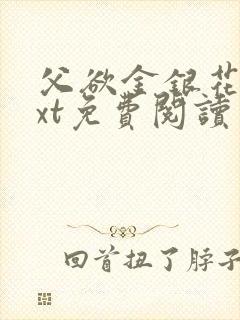 父欲金银花
xt免費閱讀
回首扭了脖子